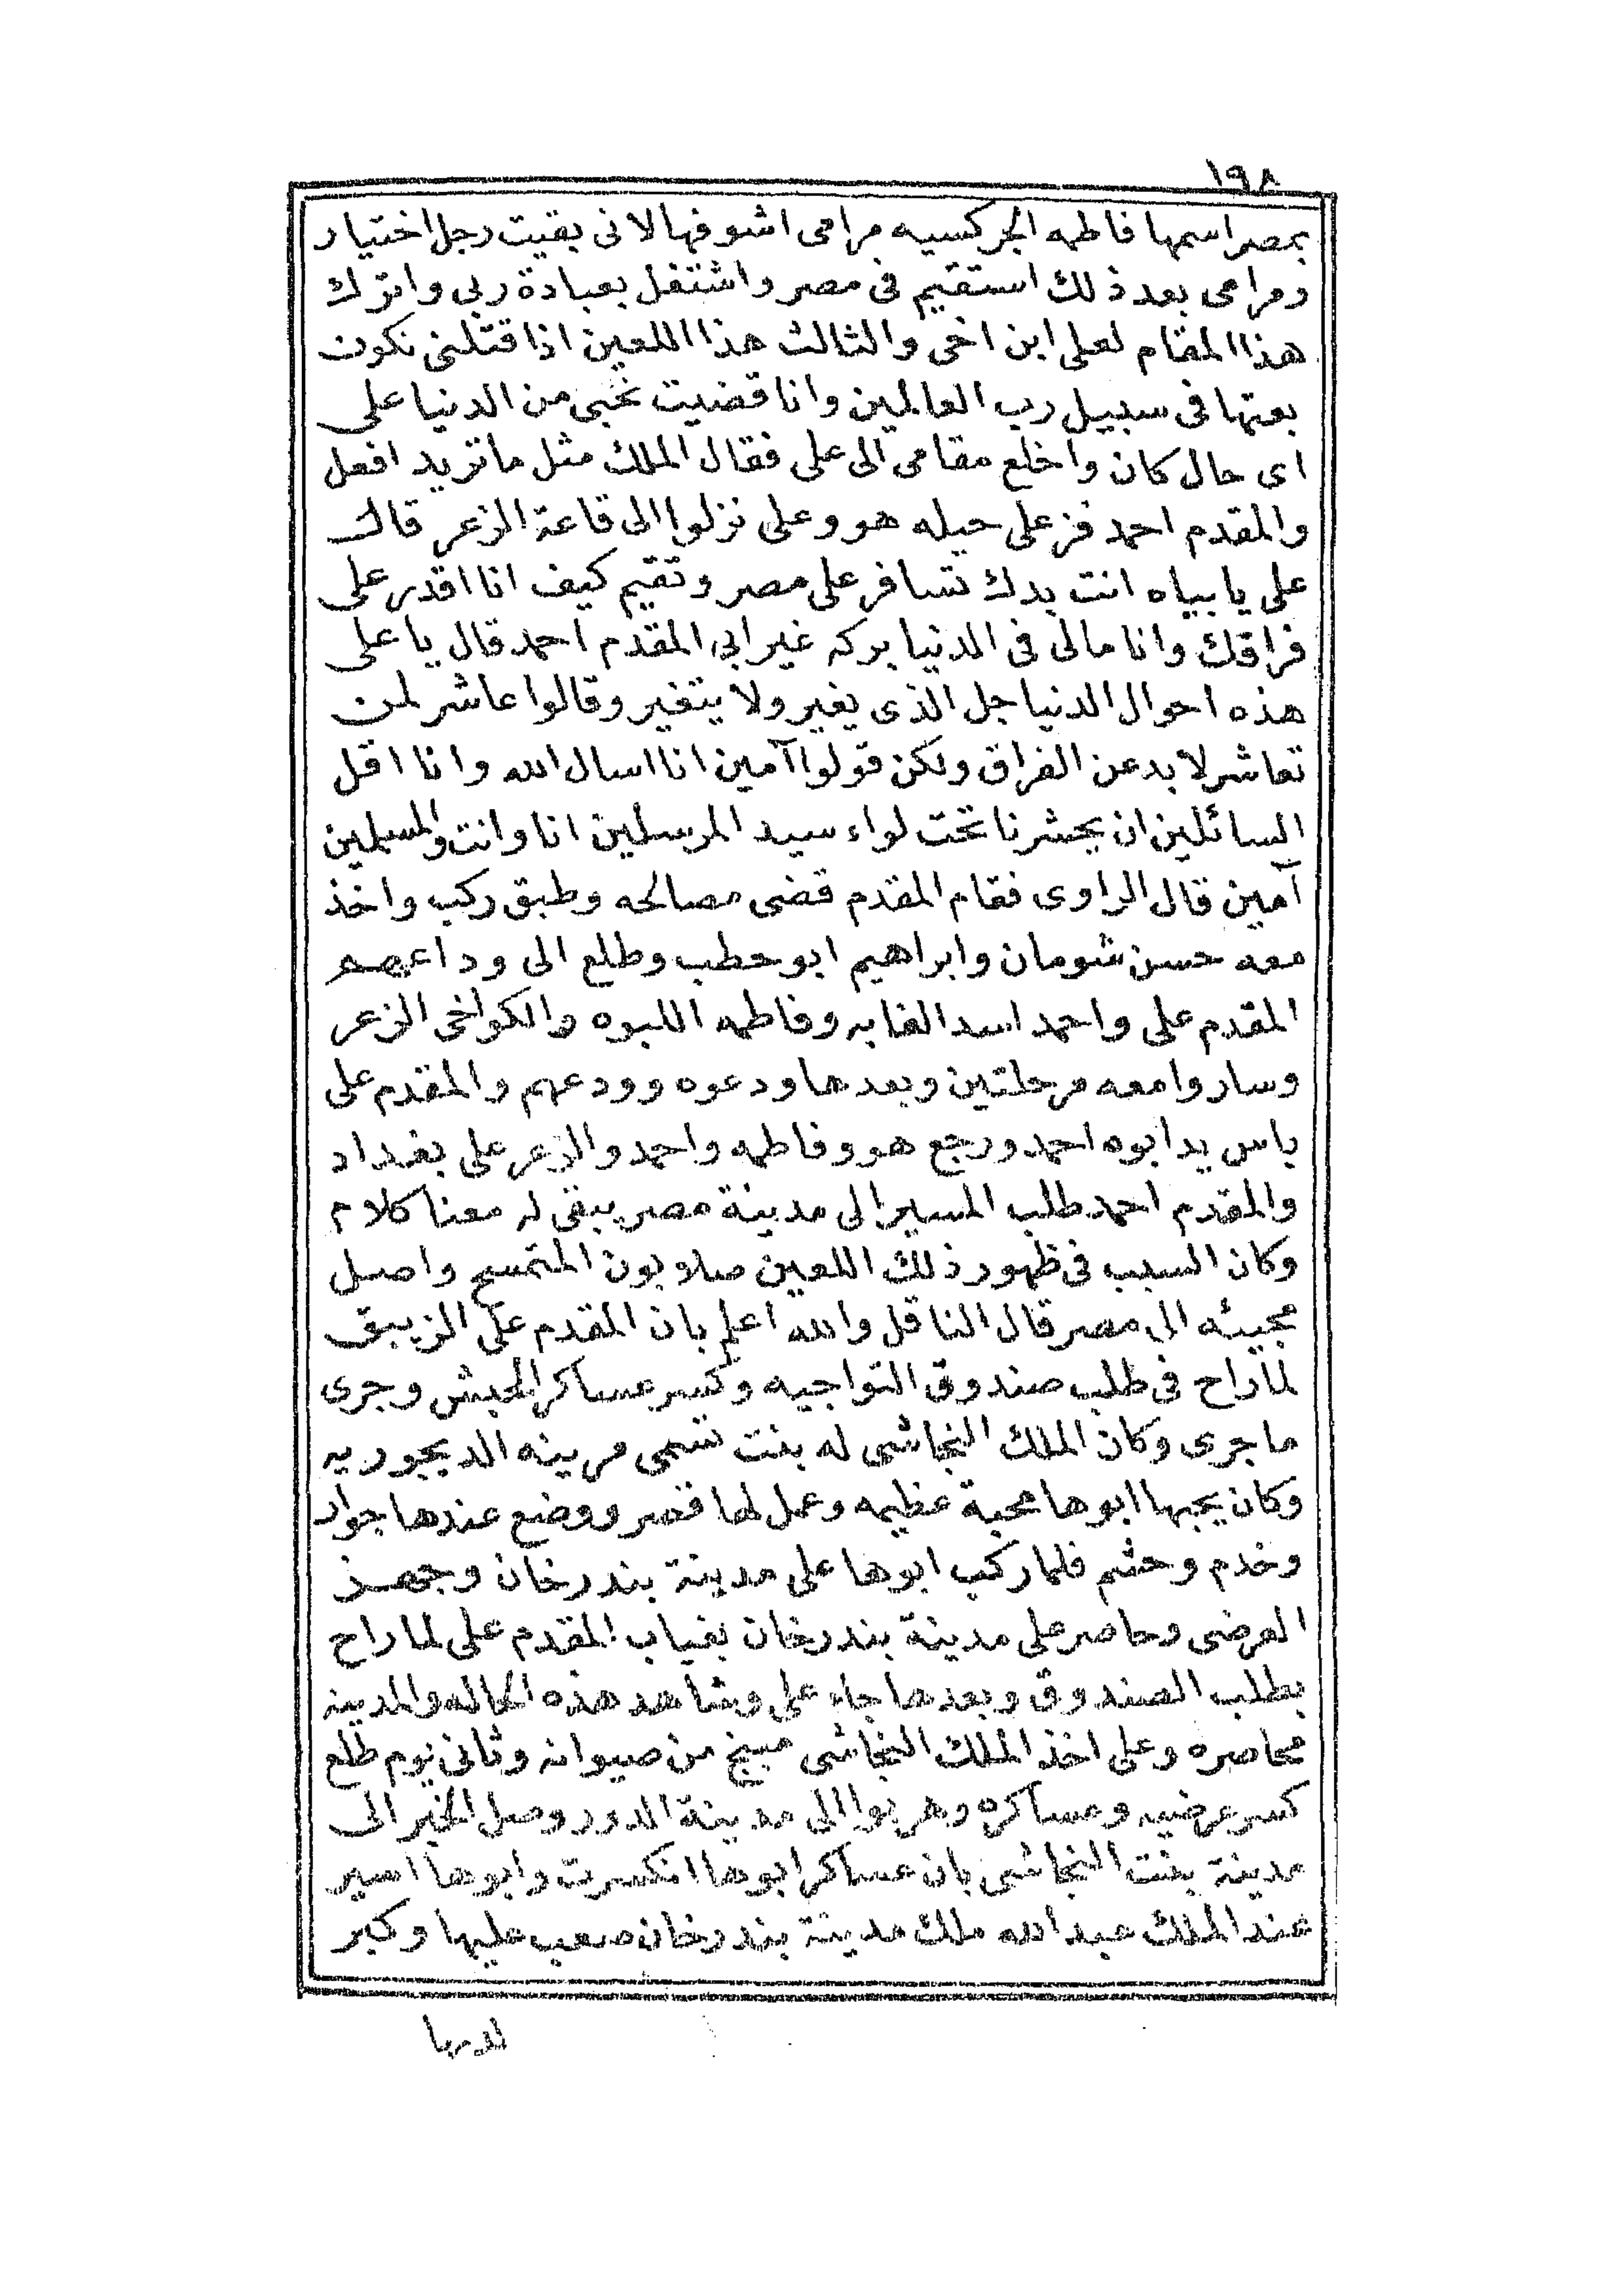 ١٩٨
بمصر اسمها فاطمه الجركسيه مرامى اشوفها لانى بقيت رجل اختيار
ومرامى بعد ذلك استقيم فى مصر واشتغل بعبادة ربى واترك
هذا المقام لعلى ابن اخى والثالث هذا اللعين اذا قتلنى نكون
بعتها فى سبيل رب العالمين وانا قضيت نحبى من الدنيا على
اى حال كان واخلع مقامى الى على فقال الملك مثل ما تريد افعل
والمقدم احمد فز على حيله هو وعلى نزلوا الى قاعة الزعر قال
على يا بياه انت بدك تسافر على مصر وتقيم كيف انا اقدر على
فراقك وانا مالى فى الدنيا بركه غير ابى المقدم احمد قال يا على
هذه احوال الدنيا جل الذى يغير ولا يتغير وقالوا عاشر لمن
تعاشر لا بد عن الفراق ولكن قولوا آمين انا اسال الله وانا اقل
السائلين ان يحشرنا تحت لواء سيد المرسلين انا وانت والمسلمين
آمين قال الراوى فقام المقدم قضى مصالحه وطبق ركب واخذ
معه حسن شومان وابراهيم ابو حطب وطلع الى وداعهم
المقدم على واحمد اسد الغابه وفاطمه اللبوه والكواخى الزعر
وساروا معه مرحلتين وبعدها ودعوه وودعهم والمقدم على
باس يد ابوه احمد ورجع هو وفاطمه واحمد والزعر على بغداد
والمقدم احمد طلب المسير الى مدينة مصر يبقى له معنا كلام
وكان السبب فى ظهور ذلك اللعين صلابون المتمسح واصل
مجيئه الى مصر قال الناقل والله اعلم بان المقدم على الزيبق
لما راح فى طلب صندوق التواجيه وكسر عساكر الحبش وجرى
ما جرى وكان الملك النجاشى له بنت تسمى مرينه الديجوريه
وكان يحبها ابوها محبة عظيمه وعمل لها قصر ووضع عندها جوار
وخدم وحشم فلما ركب ابوها على مدينة بندرخان وجهز
العرضى وحاصر على مدينة بندرخان بغياب المقدم على لما راح
بطلب الصندوق وبعدها جاء على وشاهد هذه الحاله والمدينه
محاصره وعلى اخذ الملك النجاشى مبنج من صيوانه وثانى يوم طلع
كسر عرضيه وعساكره وهربوا الى مدينة الدور وصل الخبر الى
مدينة بنت النجاشى بان عساكر ابوها انكسرت وابوها اسير
عند الملك عبد الله ملك مدينة بندرخان صعب عليها وكبر
لديها